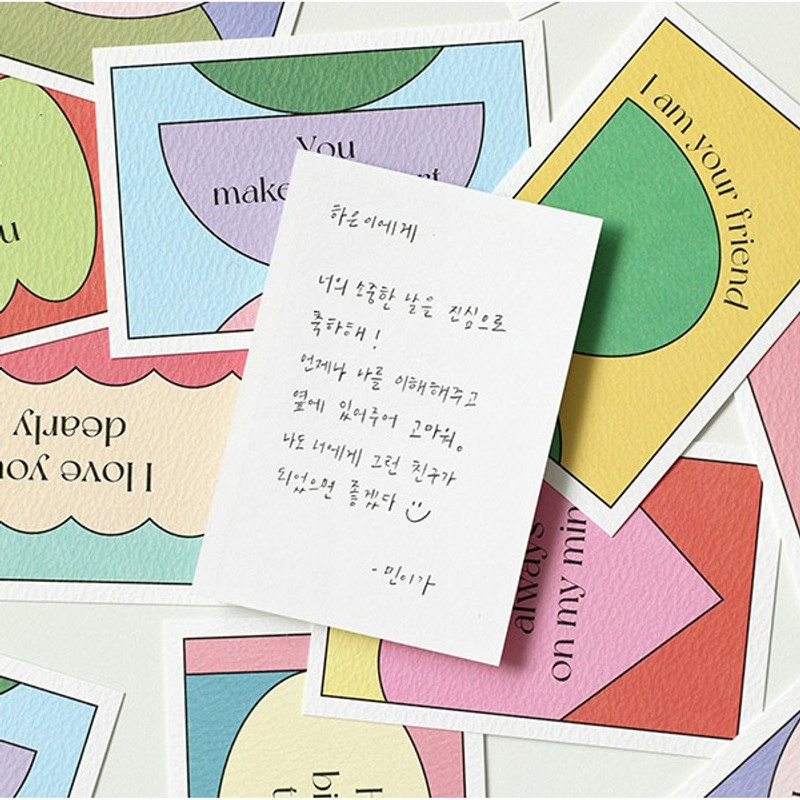 You
make
I am your friend
하은이에게
너의 소중한 날을 진심으로
축하해!
언제나 나를 이해해주고
옆에 있어주어 고마워。
나도 너에게 그런 친구가
되었으면 좋겠다
-민이가
I love you
dearly
always
on my